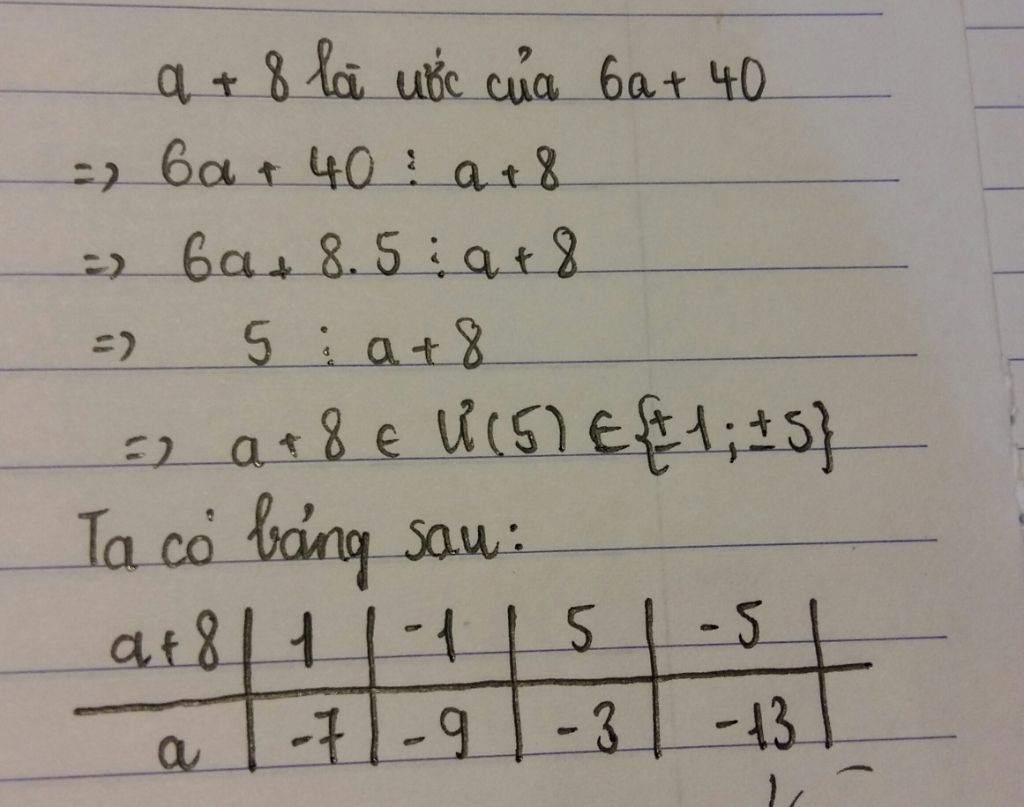 a + 8 là ước của 6a + 40
=> 6a + 40 ⋮ a + 8
=> 6a + 8.5 ⋮ a + 8
=> 5 ⋮ a + 8
=> a + 8 ∈ Ư(5) ∈ {±1; ±5}
Ta có bảng sau:
a+8 | 1 | -1 | 5 | -5 |
a | -7 | -9 | -3 | -13 |